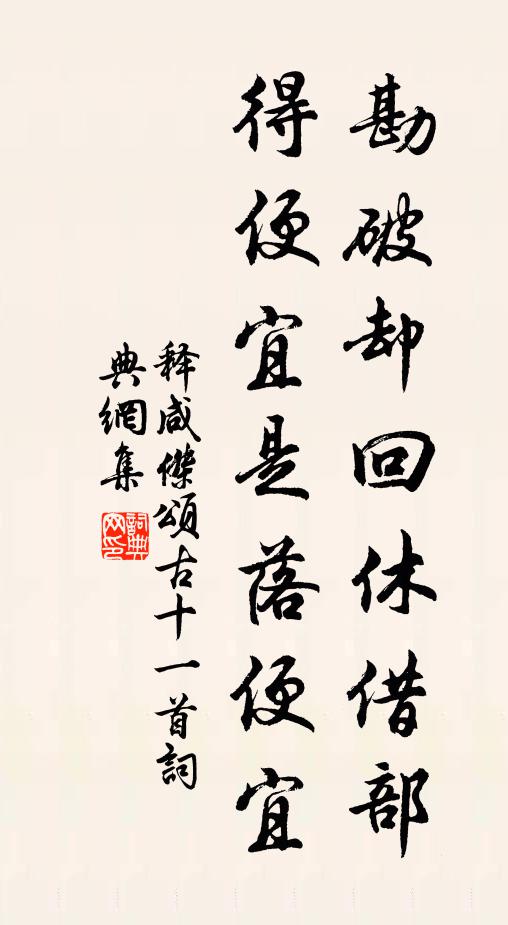 勘破却回休借部
得便宜是落便宜
释咸傑頌古十一首詞
典網集
詞典网印